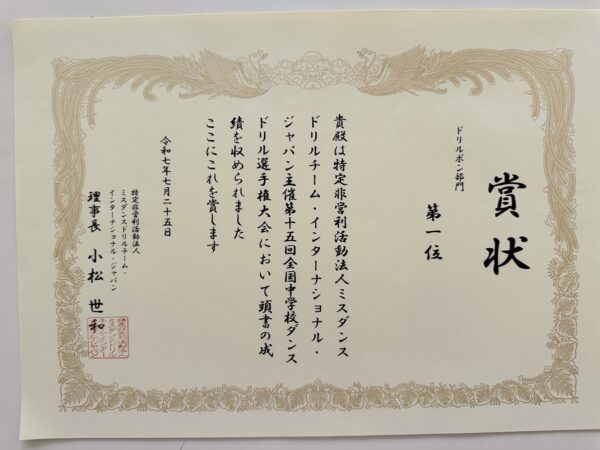 賞状
ドリルポン部門
第一位
貴殿は特定非営利活動法人ミスダンス
ドリルチーム・インターナショナル・
ジャパン主催第十五回全国中学校ダンス
ドリル選手権大会において頭書の成
績を収められました
ここにこれを賞します
令和七年七月二十五日
特定非営利活動法人
ミスダンスドリルチーム・
インターナショナル・ジャパン
理事長 小松 世和